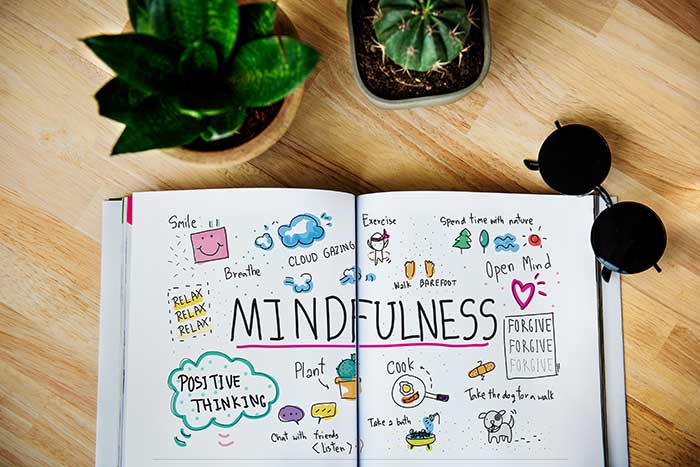 Smile
CLOUD GAZING
Breathe
RELAX
RELAX
RELAX
Exercise
Spend time with nature
Walk BAREFOOT
Open Mind
MINDFULNESS
FORGIVE
FORGIVE
FORGIVE
POSITIVE
THINKING
Plant
Chat with friends
<listen>
Cook
Take a bath
Take the dog for a walk